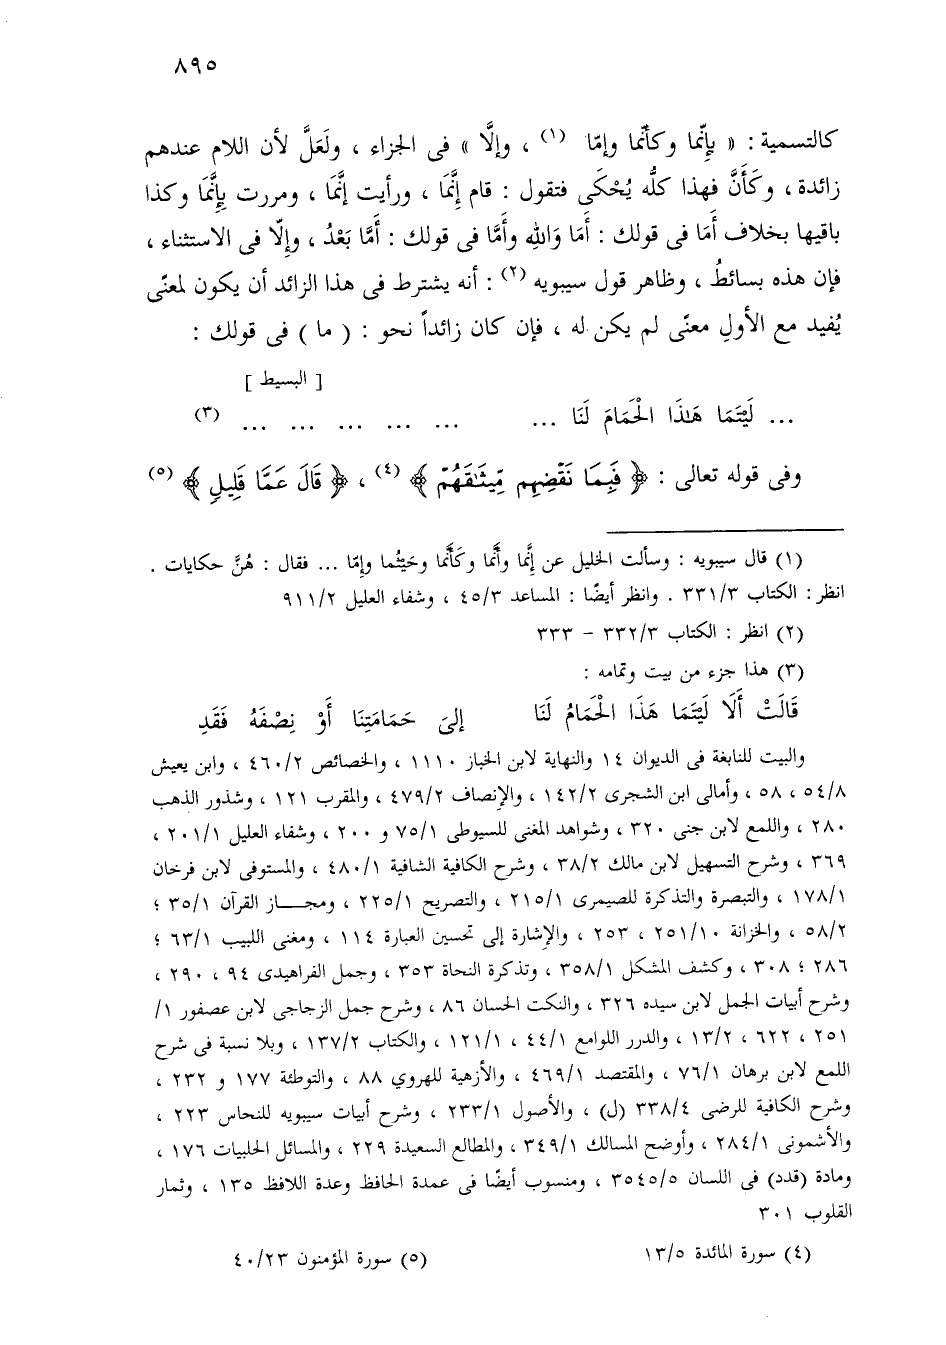 ٨٩٥
كالتسمية : « بإِنّما وكأنّما وإمّا (١) ، وإلَّا » فى الجزاء ، ولَعَلَّ لأن اللام عندهم
زائدة ، وكَأَنَّ فهذا كلُّه يُحْكَى فتقول : قام إِنَّمَا ، ورأيت إنَّمَا ، ومررت بِإِنَّمَا وكذا
باقيها بخلاف أَمَا فى قولك : أَمَا وَاللهِ وأَمَّا فى قولك : أَمَّا بَعْدُ ، وإلّا فى الاستثناء ،
فإن هذه بسائطُ ، وظاهر قول سيبويه (٢) : أنه يشترط فى هذا الزائد أن يكون لمعنًى
يُفيد مع الأولِ معنًى لم يكن له ، فإن كان زائداً نحو : ( ما ) فى قولك :
[ البسيط ]
... لَيْتَمَا هَٰذَا الْحَمَامَ لَنَا ... ... ... ... ... ... (٣)
وفى قوله تعالى : ﴿ فَبِمَا نَقْضِهِم مِّيثَٰقَهُمْ ﴾ (٤) ، ﴿ قَالَ عَمَّا قَلِيلٍ ﴾ (٥)
(١) قال سيبويه : وسألت الخليل عن إِنَّما وأَنَّما وكَأَنَّما وحَيْثُما وإِمّا ... فقال : هُنَّ حكايات .
انظر : الكتاب ٣٣١/٣ . وانظر أيضًا : المساعد ٤٥/٣ ، وشفاء العليل ٩١١/٢
(٢) انظر : الكتاب ٣٣٢/٣ – ٣٣٣
(٣) هذا جزء من بيت وتمامه :
قَالَتْ أَلَا لَيْتَمَا هَذَا الْحَمَامُ لَنَا إِلىَ حَمَامَتِنَا أَوْ نِصْفَهُ فَقَدِ
والبيت للنابغة فى الديوان ١٤ والنهاية لابن الخباز ١١١٠ ، والخصائص ٤٦٠/٢ ، وابن يعيش
٥٤/٨ ، ٥٨ ، وأمالى ابن الشجرى ١٤٢/٢ ، والإنصاف ٤٧٩/٢ ، والمقرب ١٢١ ، وشذور الذهب
٢٨٠ ، واللمع لابن جنى ٣٢٠ ، وشواهد المغنى للسيوطى ٧٥/١ و ٢٠٠ ، وشفاء العليل ٢٠١/١ ،
٣٦٩ ، وشرح التسهيل لابن مالك ٣٨/٢ ، وشرح الكافية الشافية ٤٨٠/١ ، والمستوفى لابن فرخان
١٧٨/١ ، والتبصرة والتذكرة للصيمرى ٢١٥/١ ، والتصريح ٢٢٥/١ ، ومجــاز القرآن ٣٥/١ ؛
٥٨/٢ ، والخزانة ٢٥١/١٠ ، ٢٥٣ ، والإشارة إلى تحسين العبارة ١١٤ ، ومغنى اللبيب ٦٣/١ ؛
٢٨٦ ؛ ٣٠٨ ، وكشف المشكل ٣٥٨/١ ، وتذكرة النحاة ٣٥٣ ، وجمل الفراهيدى ٩٤ ، ٢٩٠ ،
وشرح أبيات الجمل لابن سيده ٣٢٦ ، والنكت الحسان ٨٦ ، وشرح جمل الزجاجى لابن عصفور ١/
٢٥١ ، ٦٢٢ ، ١٣/٢ ، والدرر اللوامع ٤٤/١ ، ١٢١/١ ، والكتاب ١٣٧/٢ ، وبلا نسبة فى شرح
اللمع لابن برهان ٧٦/١ ، والمقتصد ٤٦٩/١ ، والأزهية للهروي ٨٨ ، والتوطئة ١٧٧ و ٢٣٢ ،
وشرح الكافية للرضى ٣٣٨/٤ (ل) ، والأصول ٢٣٣/١ ، وشرح أبيات سيبويه للنحاس ٢٢٣ ،
والأشمونى ٢٨٤/١ ، وأوضح المسالك ٣٤٩/١ ، والمطالع السعيدة ٢٢٩ ، والمسائل الحلبيات ١٧٦ ،
ومادة (قدد) فى اللسان ٣٥٤٥/٥ ، ومنسوب أيضًا فى عمدة الحافظ وعدة اللافظ ١٣٥ ، وثمار
القلوب ٣٠١
(٤) سورة المائدة ١٣/٥ (٥) سورة المؤمنون ٤٠/٢٣